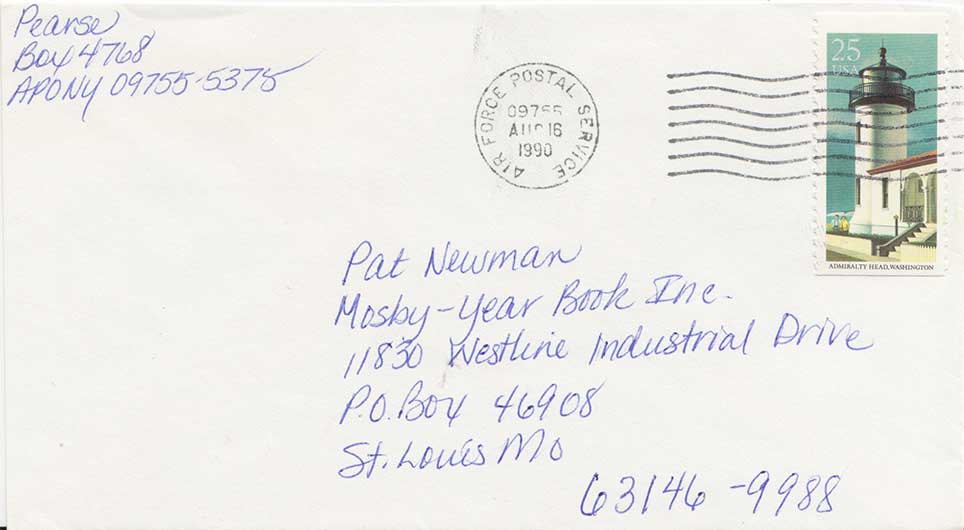 Pearse
Box 4768
APO NY 09755-5375
AIR FORCE POSTAL SERVICE
09755
AUG 16
1990
25
USA
ADMIRALTY HEAD, WASHINGTON
Pat Newman
Mosby-Year Book Inc.
11830 Westline Industrial Drive
P.O. Box 46908
St. Louis Mo
63146-9988